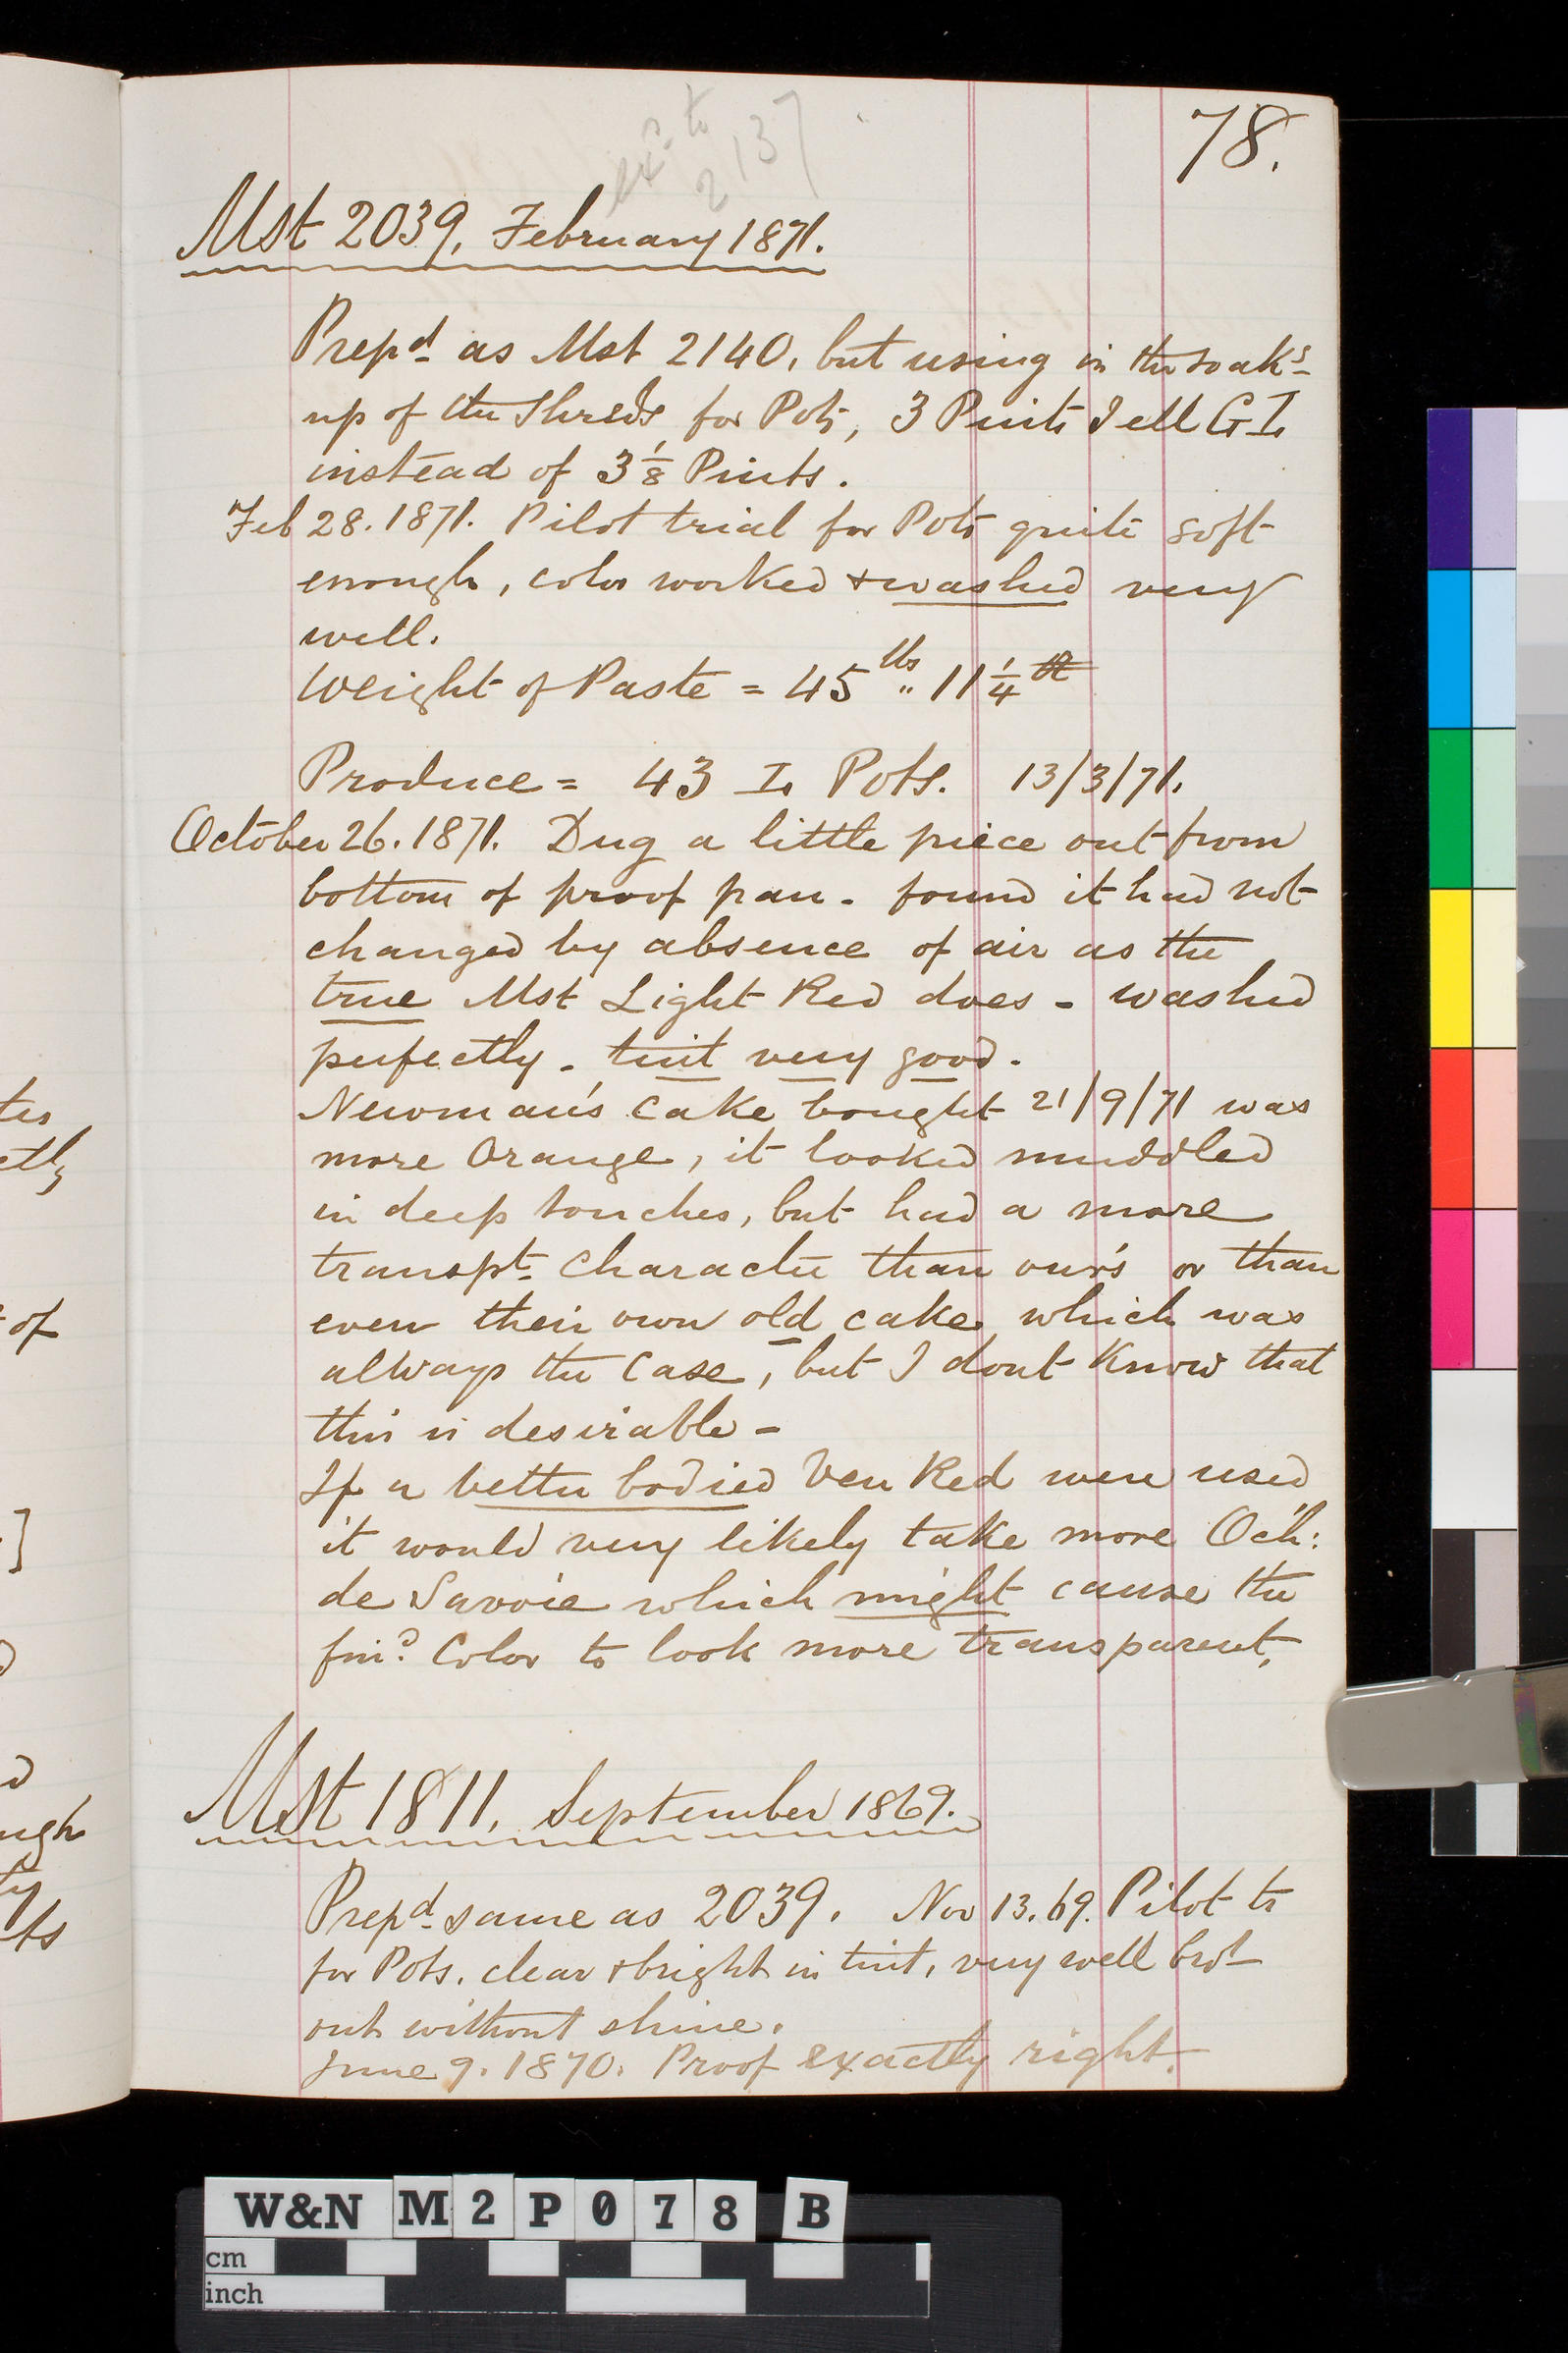 exd. to
2137
78.
Mst 2039, February 1871.
Prepd as Mst 2140, but using in the soakg
up of the Shreds for Pots, 3 Pints Jell G I,
instead of 3 1/8 Pints.
Feb 28. 1871. Pilot trial for Pots quite soft
enough, color worked & washed very
well.
Weight of Paste = 45 lbs .. 11 1/4
Produce = 43 I, Pots. 13/3/71.
October 26. 1871. Dug a little piece out from
bottom of proof pan - found it had not
changed by absence of air as the
true Mst Light Red does - washed
perfectly - tint very good.
Newman's Cake bought 21/9/71 was
more Orange, it looked muddled
in deep touches, but had a more
transpt. Character than our's or than
even their own old cake which was
always the Case, but I dont Know that
this is desirable -
If a better bodied Ven Red were used
it would very likely take more Och:
de Savoie which might cause the
find Color to look more transparent,
Mst 1811, September 1869.
Prepd same as 2039. Nov 13. 69. Pilot tr
for Pots, clear & bright in tint, very well brot
out without shine.
June 9. 1870. Proof exactly right.
tes
ctly
of
]
d
ugh
ty
ts
W&N M 2 P 0 7 8 B
cm
inch